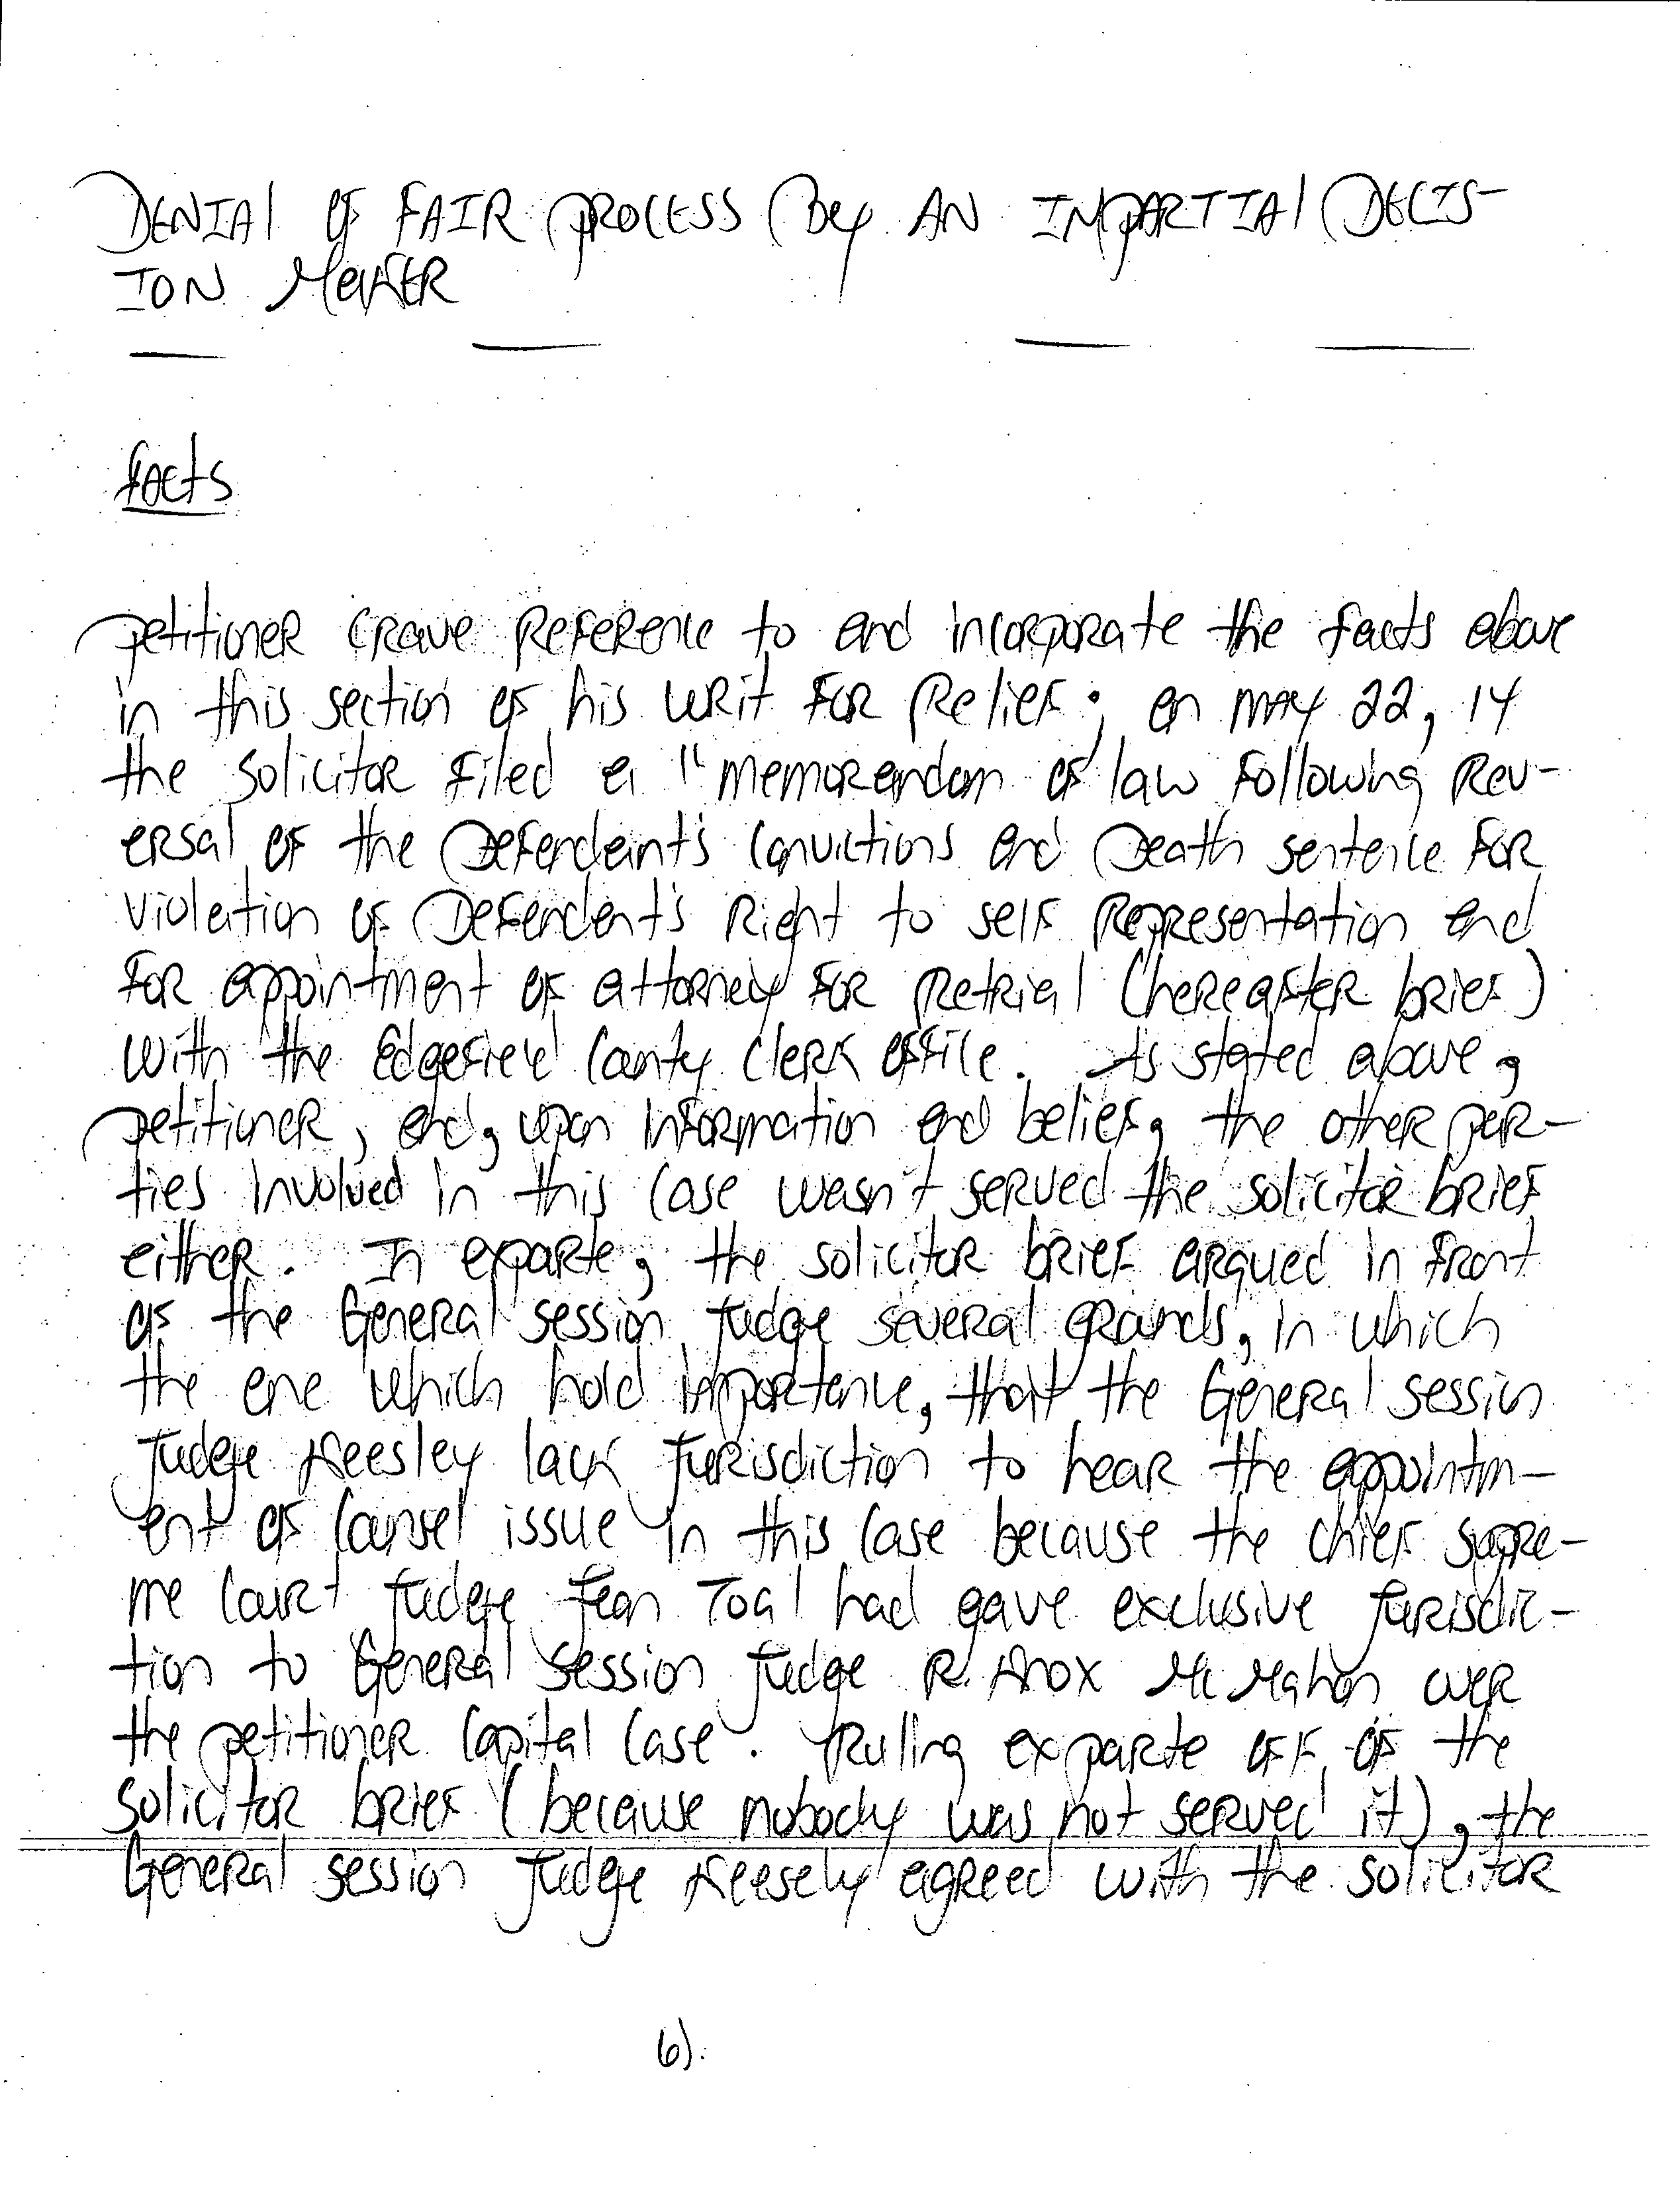 DENIAl OF FAIR PROCESS By AN IMPARTIAl DECIS-
ION MAKER
facts
petitioner crave Reference to and incorporate the facts above
in this section of his writ for Relief; on may 22, 14
the solicitor filed a "memorandom of law following Rev-
ersal of the Defendant's convictions and Death sentence for
violation of Defendent's Right to self Representation and
for appointment of attorney for Retrial (hereafter brief)
with the Edgefield County Clerk office. As stated above,
petitioner, and, upon information and belief, the other par-
ties involved in this case wasn't served the solicitor brief
either. In exparte, the solicitor brief argued in front
of the General session Judge several grounds, in which
the one which hold importance, that the General session
Judge Keesley lack Jurisdiction to hear the appointm-
ent of counsel issue in this case because the chief supre-
me court Judge Jean Toal had gave exclusive Jurisdic-
tion to General session Judge R. Knox McMahon over
the petitioner capital case. Ruling exparte off of the
solicitor brief (because nobody was not served it), the
General session Judge Keesely agreed with the solicitor
6).